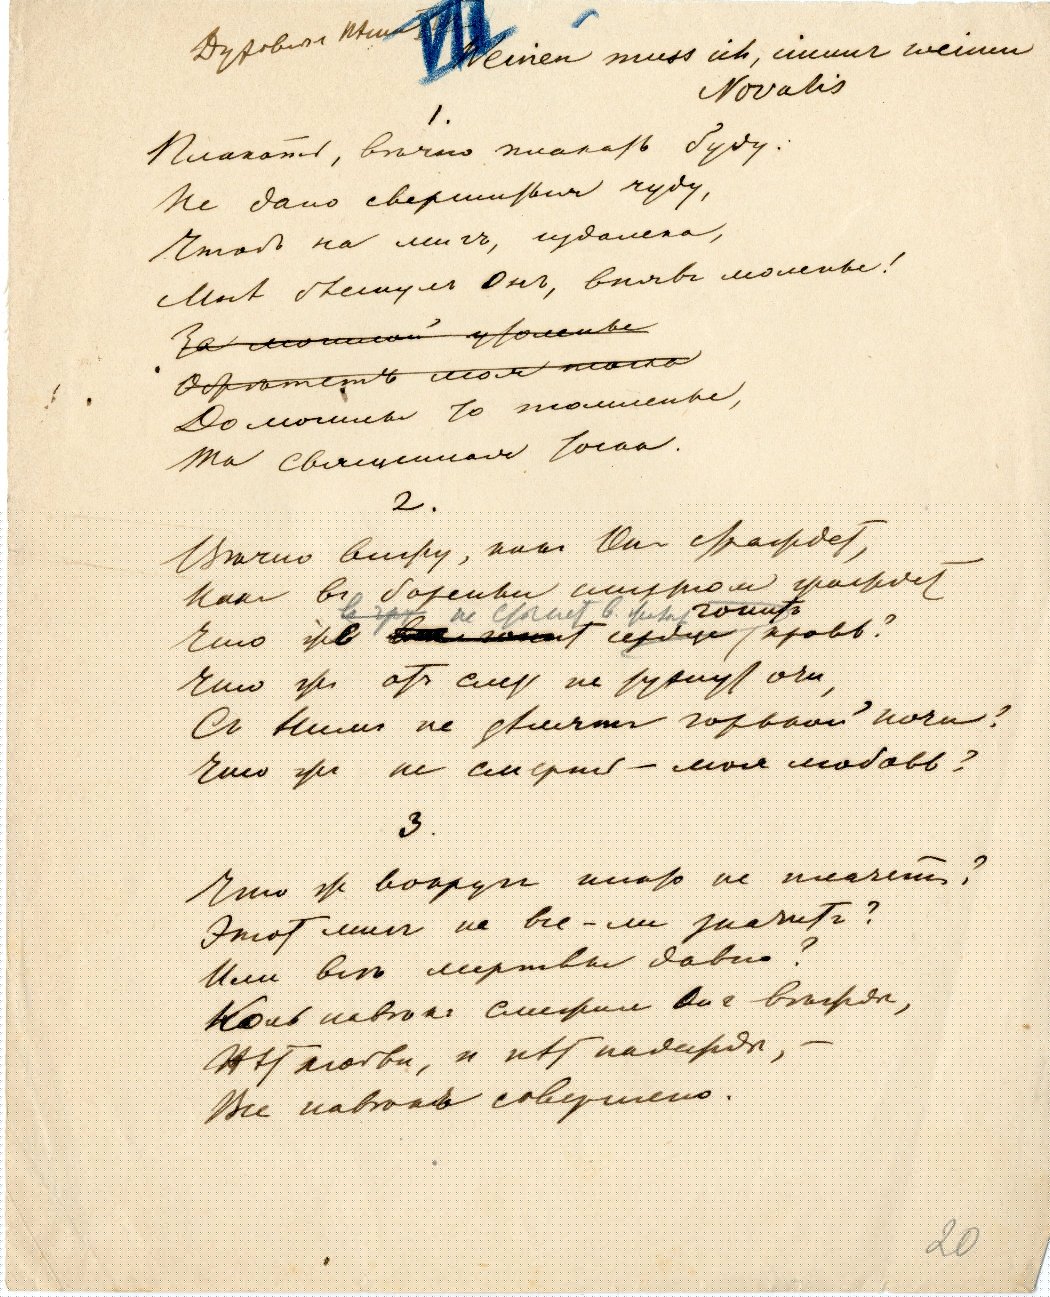 Духовныя
VII
Weinen muss ich, immer weinen
Novalis
1.
Плакать, вѣчно плакать буду:
Не дано свершиться чуду,
Чтобъ на мигъ, издалека,
Мнѣ блеснулъ Онъ, внявъ моленье!
За могилой утоленье
Обрѣтетъ моя тоска
До могилы то томленье,
Та священная тоска.
2.
Вѣчно вижу, какъ Онъ страждетъ,
Какъ въ боренья смертномъ жаждетъ
не стынетъ въ жилахъ
гонитъ
Что жъ сердце кровь?
Что жъ отъ слезъ не рухнутъ очи,
Съ Ними не дѣлить горькой ночи?
Что жъ не смерть – моя любовь?
3.
Что жъ вокругъ никто не плачетъ?
Этотъ мигъ не все-ли значитъ?
Или всѣ мертвы давно?
Коль навѣкъ смежилъ Онъ вѣжды,
Нѣтъ любви, и нѣтъ надежды, –
Все навѣкъ совершено.
20